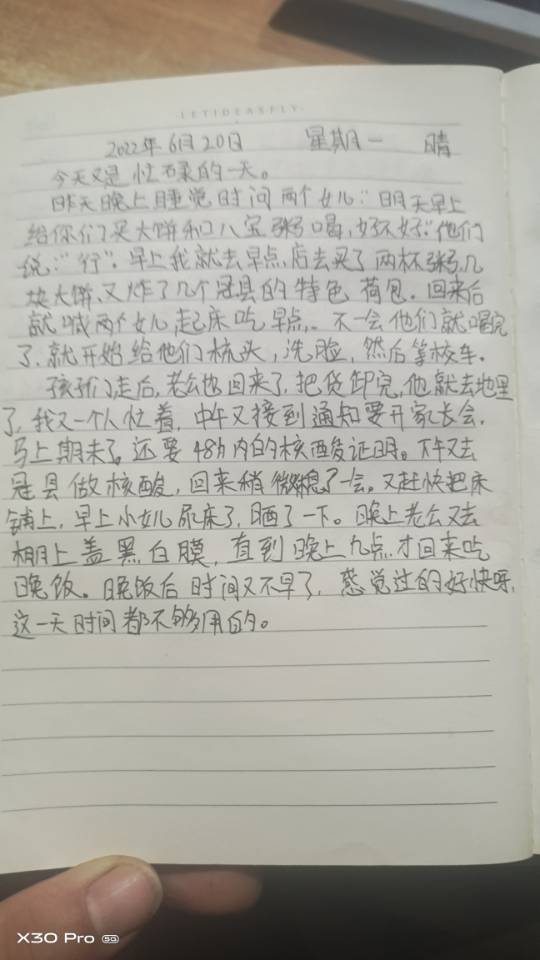 LETIDEASFLY
2022年6月20日 星期一 晴
今天又是忙碌的一天。
昨天晚上睡觉时问两个女儿:"明天早上
给你们买大饼和八宝粥喝,好不好"他们
说:"行"。早上我就去早点店去买了两杯粥,几
块大饼,又炸了几个冠县的特色 荷包. 回来后
就喊两个女儿起床吃早点. 不一会他们就喝完
了.就开始给他们梳头,洗脸,然后等校车.
孩子们走后,老公也回来了.把货卸完,他就去地里
了,我又一个人忙着,中午又接到通知要开家长会.
马上期末了,还要48h内的核酸证明。下午又去
冠县做核酸,回来稍微缌了一会。又赶快把床
铺上,早上小女儿尿床了,晒了一下。晚上老公又去
棚上盖黑白膜,直到晚上九点才回来吃
晚饭。晚饭后时间又不早了,感觉过的好快呀,
这一天时间都不够用的。
X30 Pro 5G